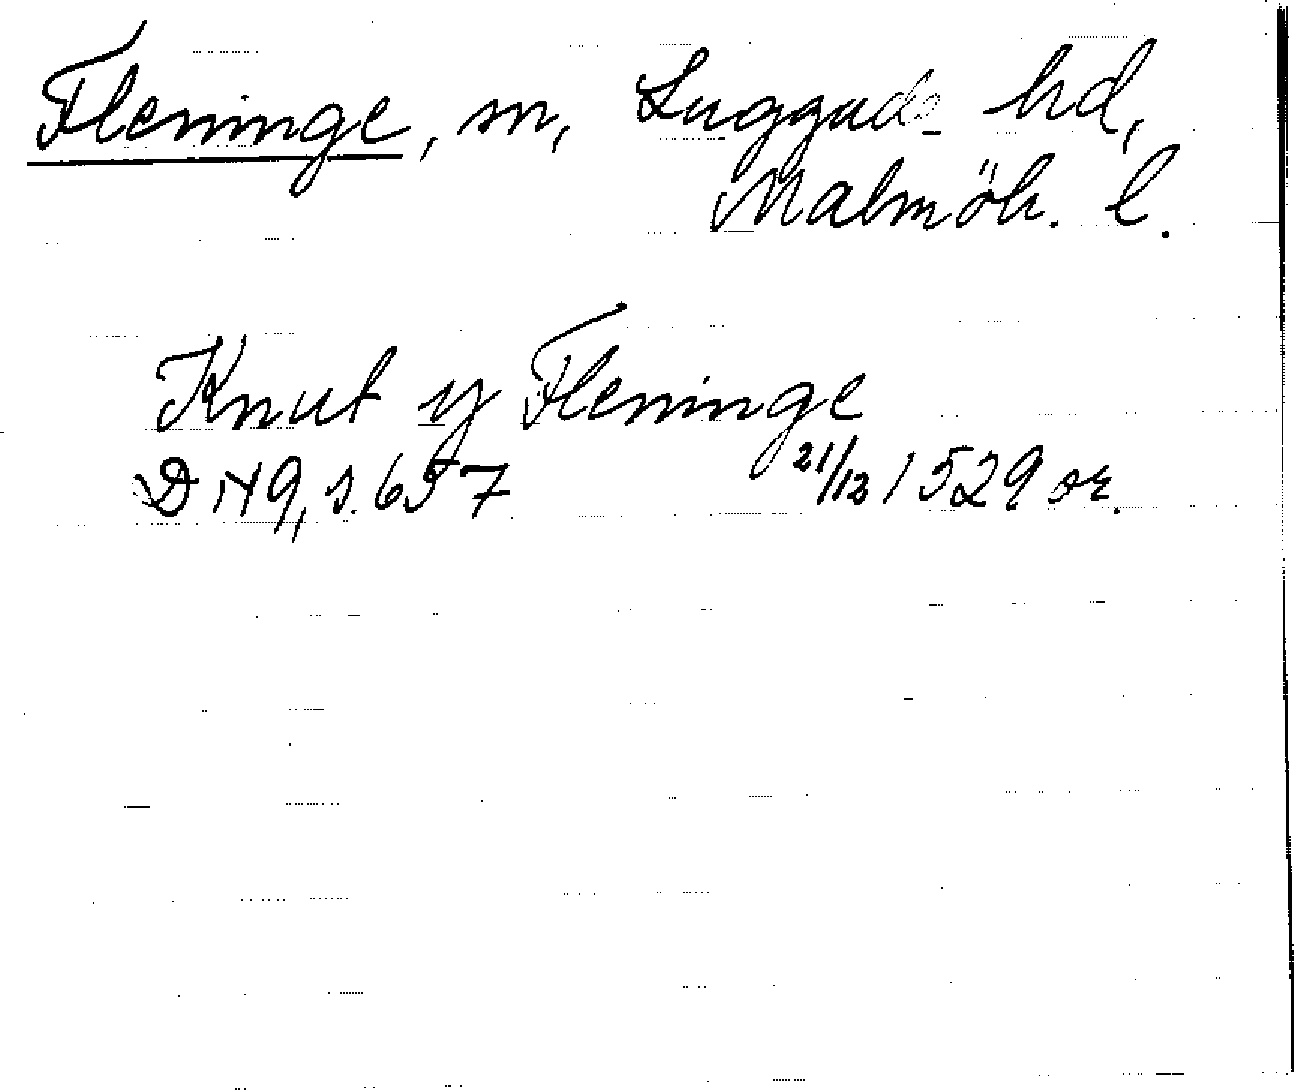 Fleninge, sn, Luggude hd,
Malmöh. l.
Knut y Fleninge
DN 9, s. 657 21/12 1529 or.